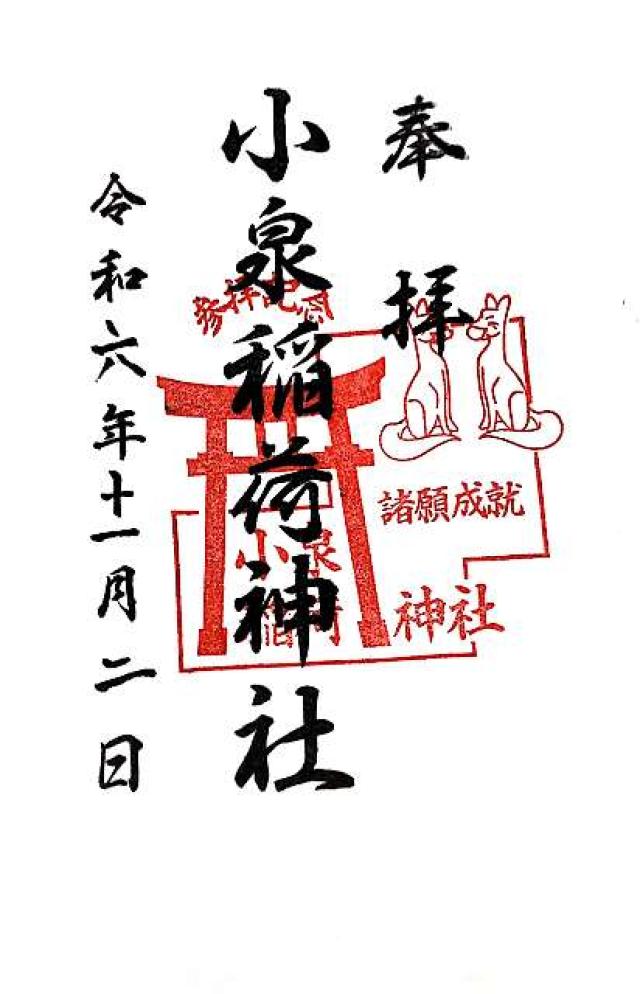 奉拝
小泉稲荷神社
令和六年十一月二日
参拝記念
諸願成就
小泉
稲荷
神社